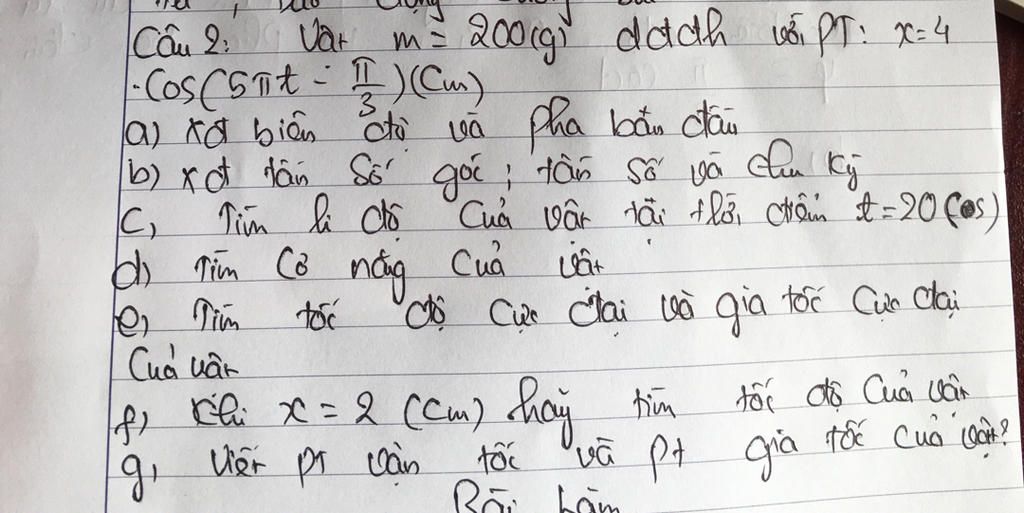 Câu 2: Vật m = 200(g) dđđh với PT: x=4
.Cos(5πt - π/3)(Cm)
a) xđ biên độ và pha ban đầu
b) xđ tần số góc; tần số và chu kỳ
c, Tìm li độ của vật tại thời điểm t=20(s)
d) Tìm Cơ năng của vật
e, Tìm tốc độ cực đại và gia tốc cực đại
Của vật
f) Khi x = 2 (Cm) hãy tìm tốc độ của vật
g, viết PT vận tốc và pt gia tốc của vật?
Bài làm